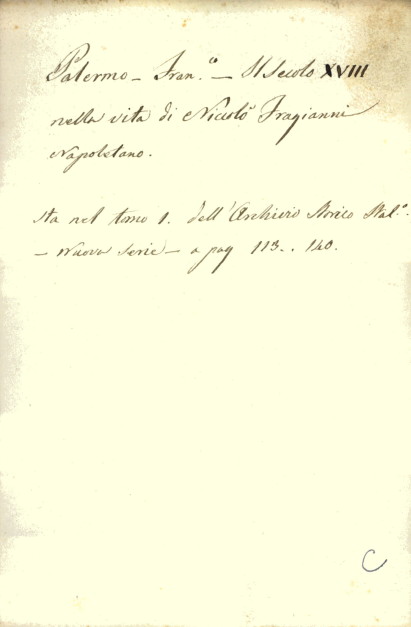 Palermo - Fran.º - Il Secolo XVIII
nella vita di Nicolò Fragianni
Napoletano.
sta nel tomo 1. dell'Archivio Storico Ital.º.
- Nuova Serie - a pag 113. . 140.
C